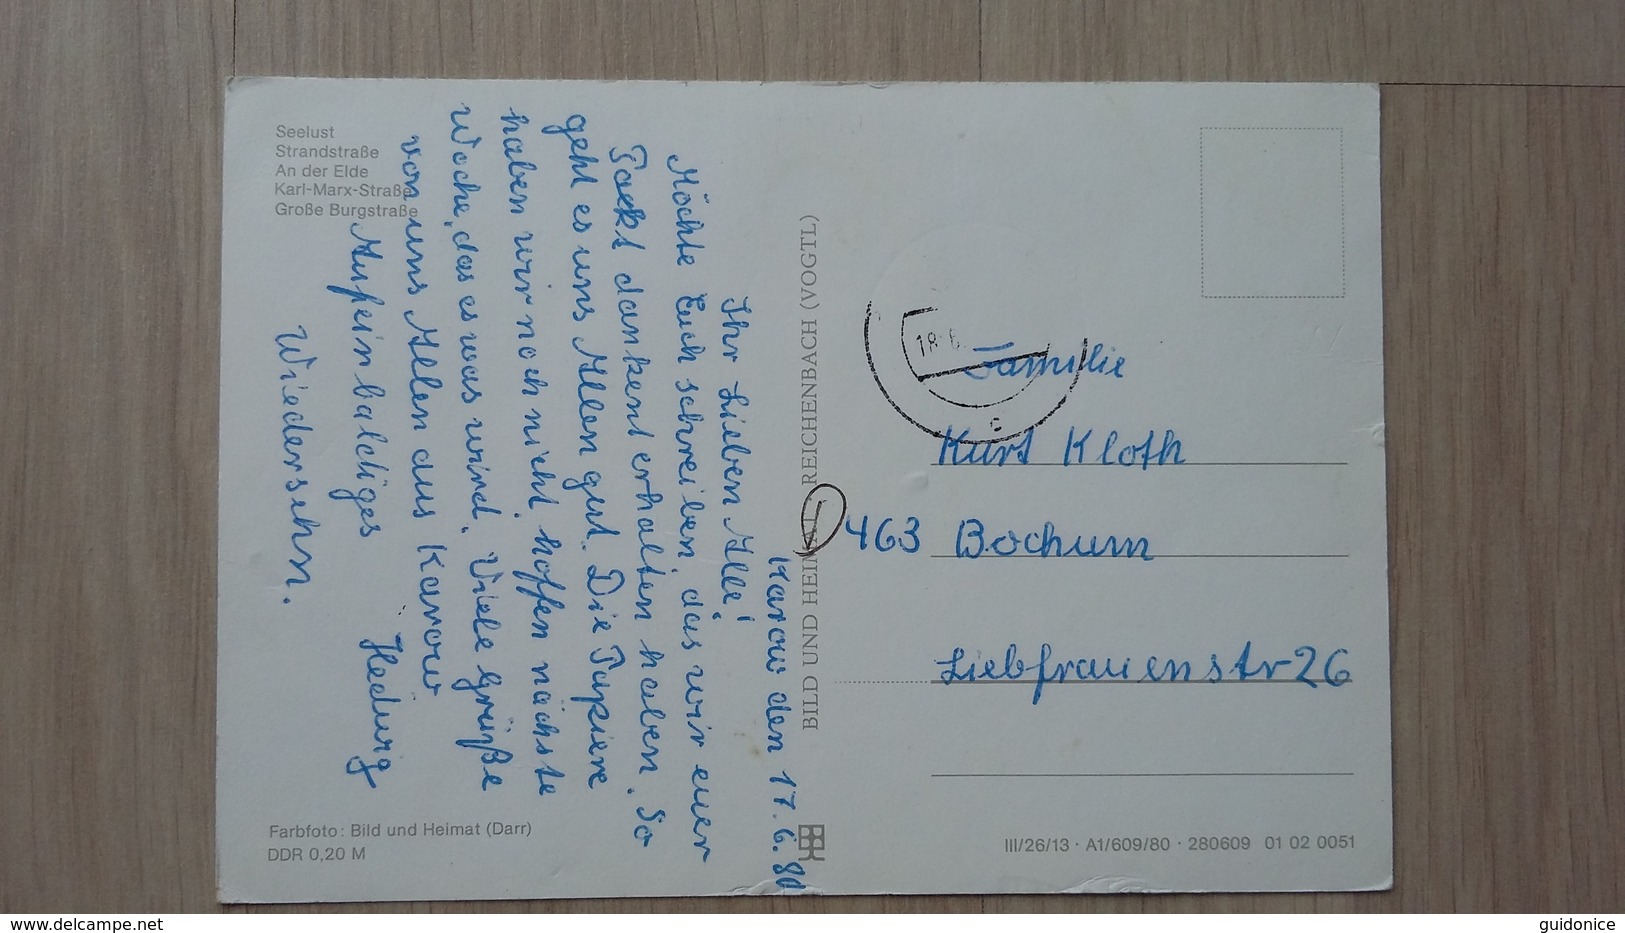 Seelust
Strandstraße
An der Elde
Karl-Marx-Straße
Große Burgstraße
Karow den 17.6.80
Ihr Lieben All!
Möchte Euch schreiben, das wir euer
Packt dankent erhalten haben. So
geht es uns Allen gut. Die Papiere
haben wir noch nicht, hoffen nächste
Woche, das es was wird. Viele Grüße
von uns Allen aus Karow
Auf ein baldiges Hedwig
Wiedersehn.
Farbfoto: Bild und Heimat (Darr)
DDR 0,20 M
BILD UND HEIMAT REICHENBACH (VOGTL)
18.6
c
Familie
Kurt Kloth
463 Bochum
Liebfrauenstr 26
III/26/13 · A1/609/80 · 280609 01 02 0051
www.delcampe.net
guidonice